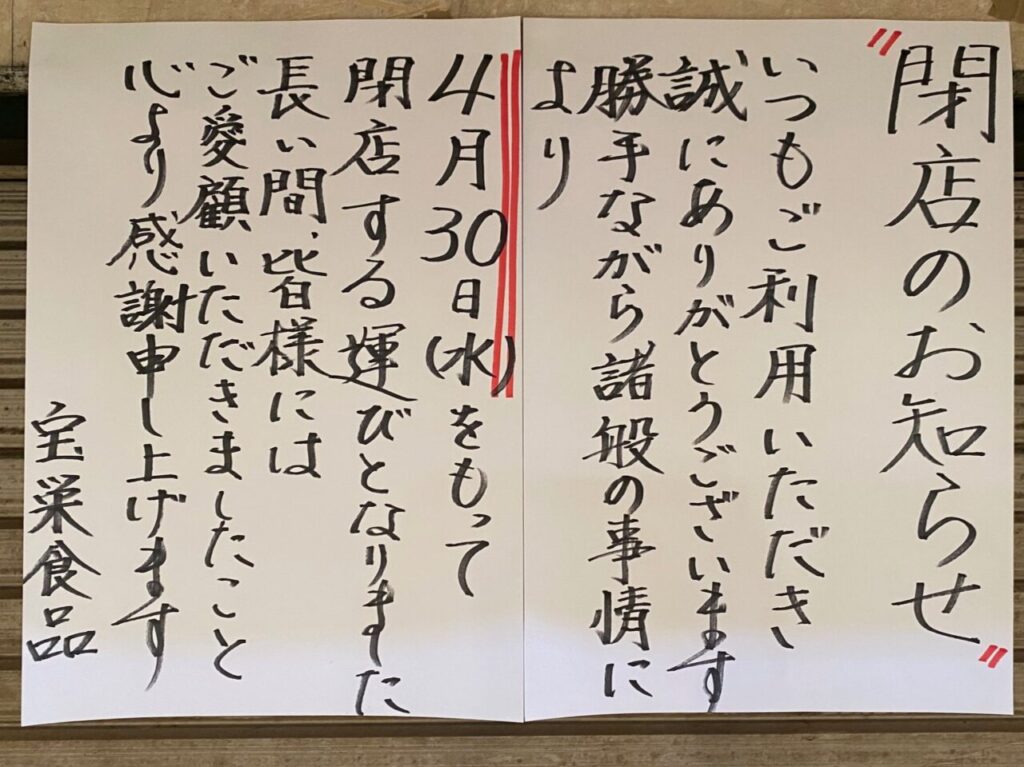 "閉店のお知らせ"
いつもご利用いただき
誠にありがとうございます
勝手ながら諸般の事情に
より
4月30日(水)をもって
閉店する運びとなりました
長い間、皆様には
ご愛顧いただきましたこと
心より感謝申し上げます
宝栄食品